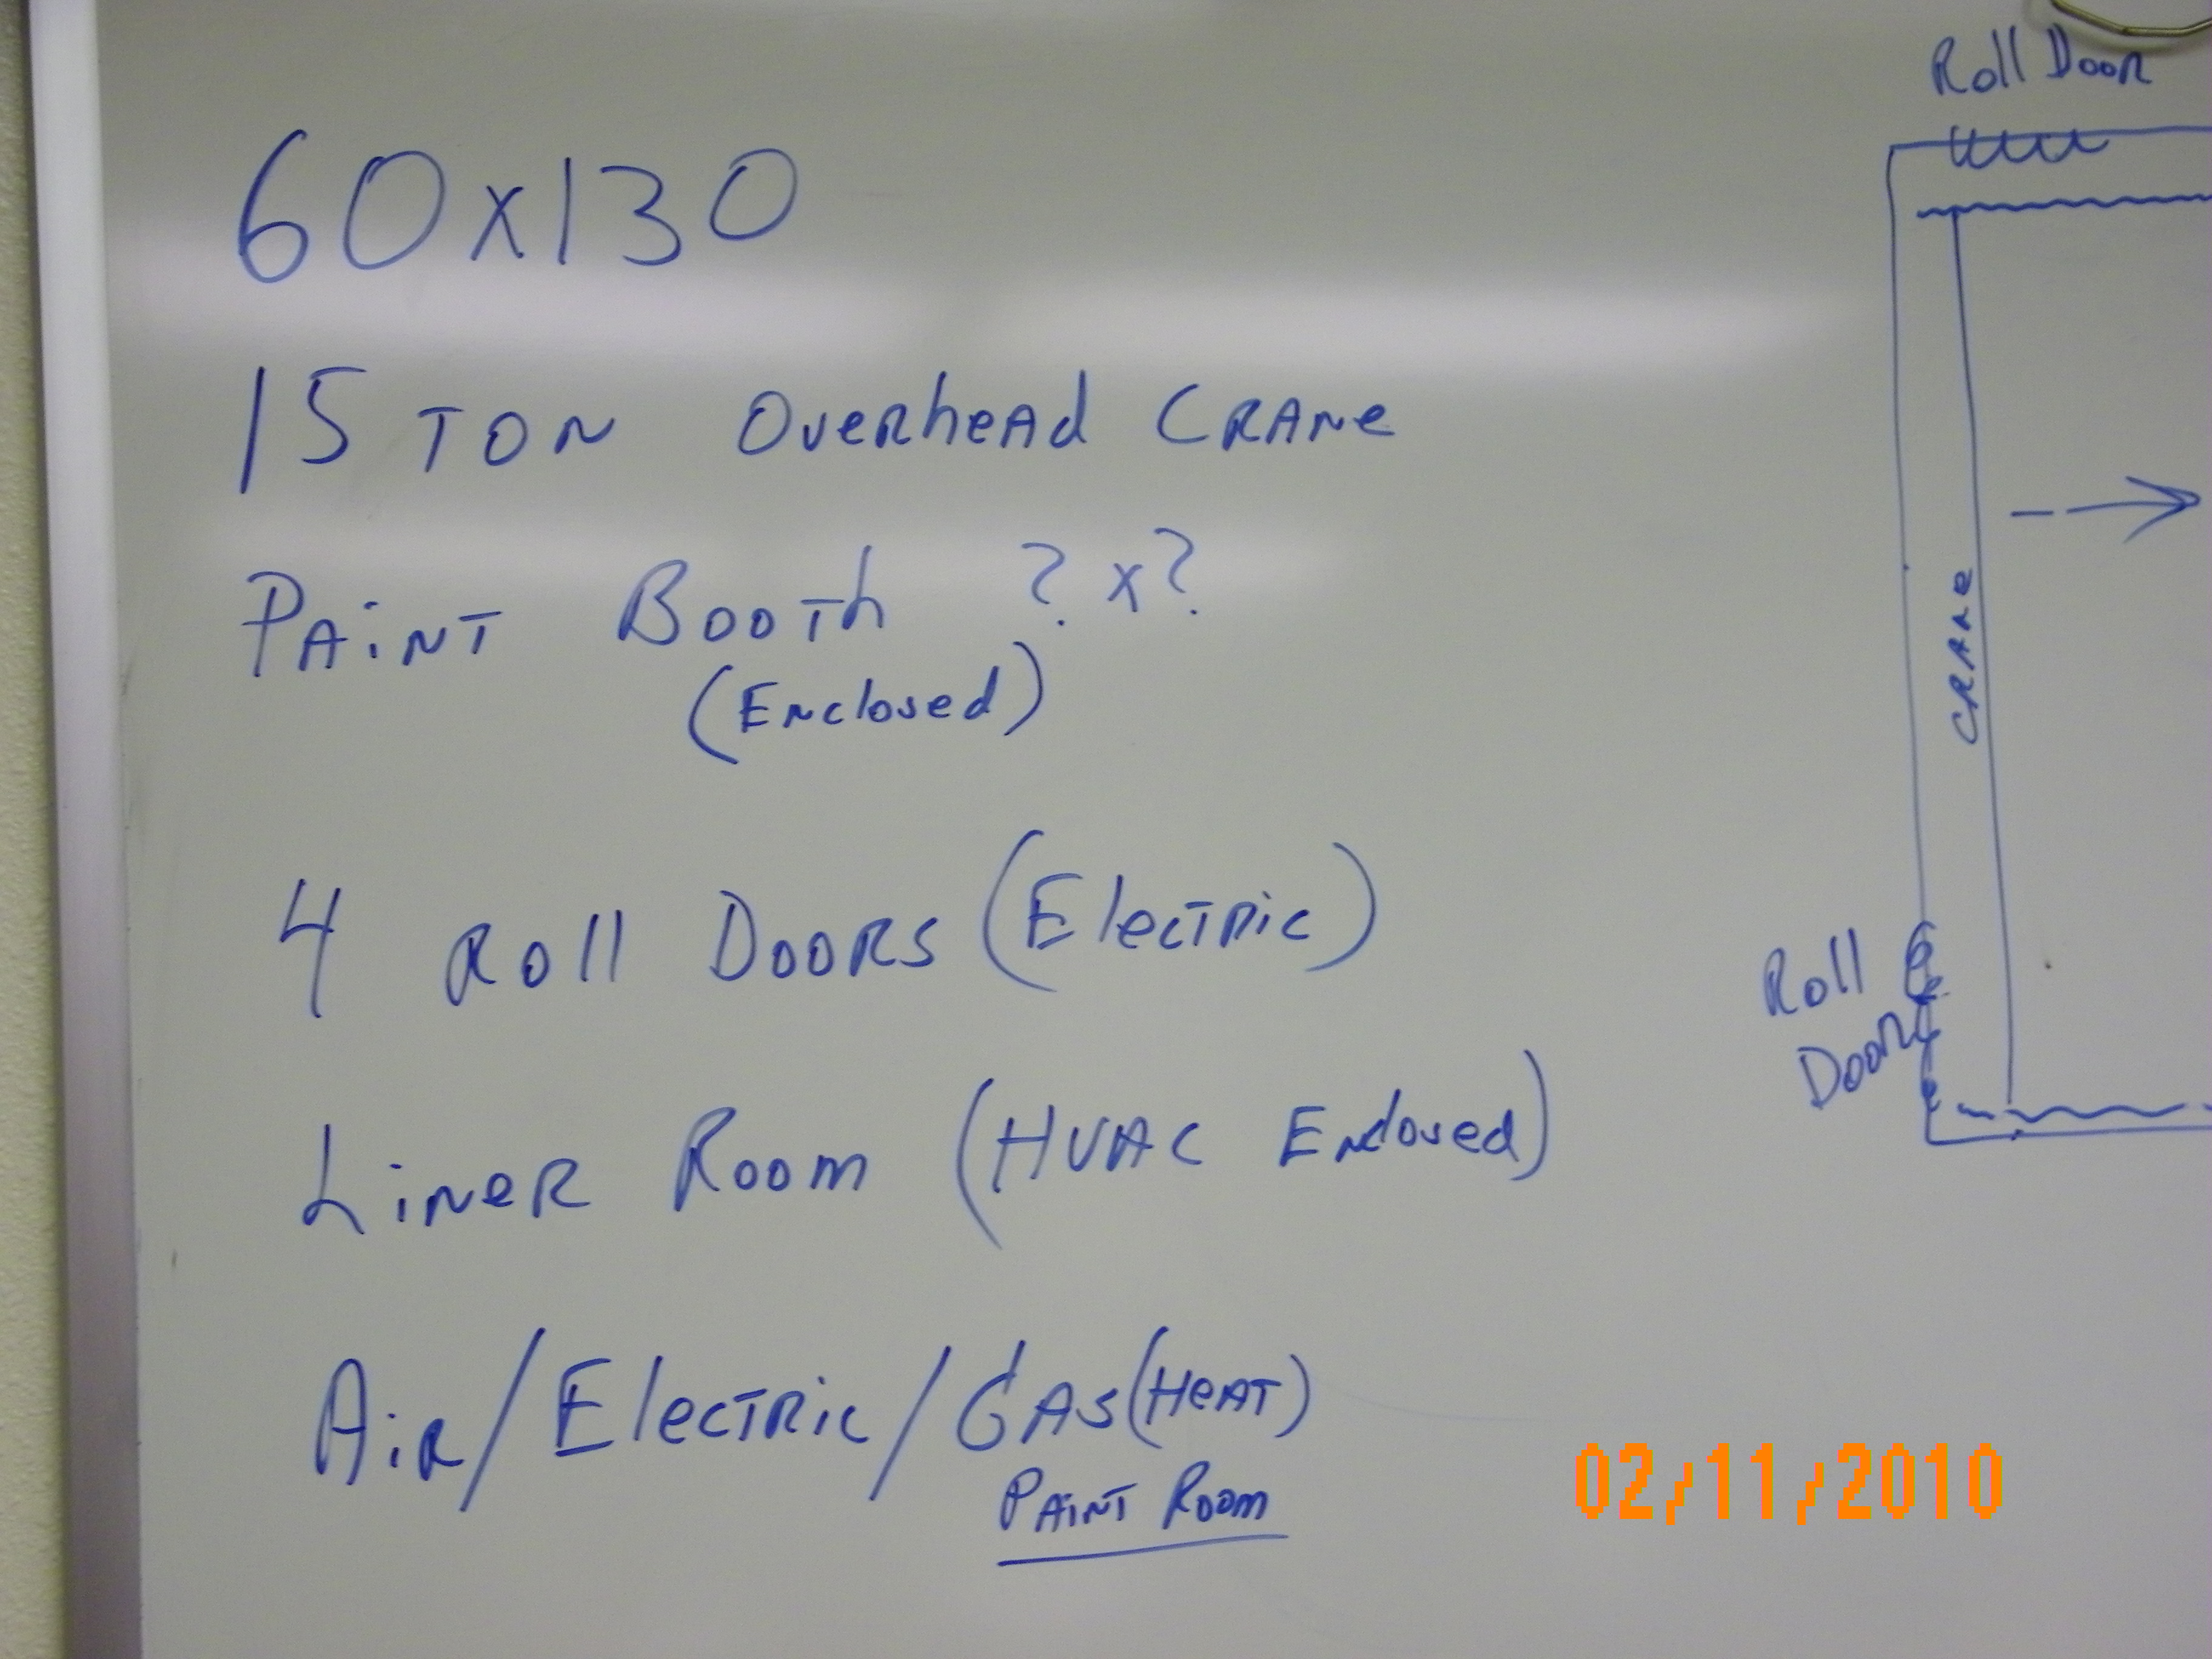 60x130
15 TON Overhead CRANE
PAINT Booth ? x?
(Enclosed)
4 Roll Doors (Electric)
Liner Room (HVAC Enclosed)
Air/Electric/GAS (HEAT)
PAINT Room
Roll Door
CRANE
Roll
Door
02/11/2010